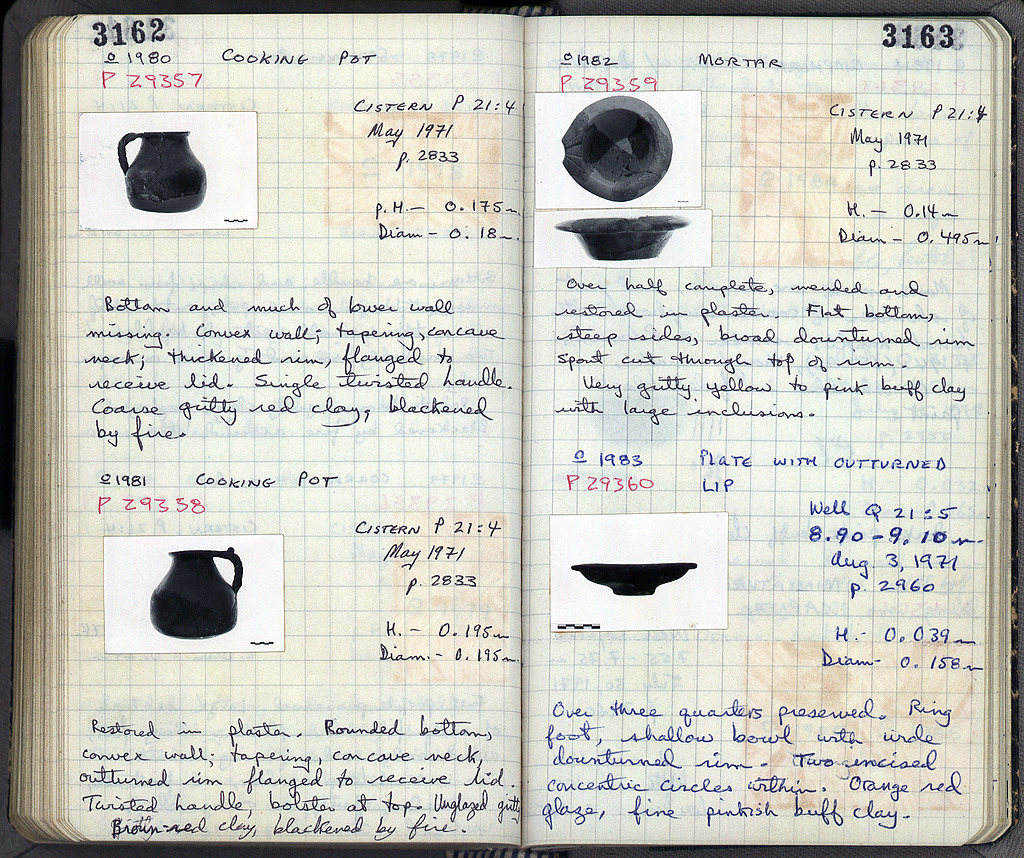 3162
o 1980 COOKING POT
P 29357
CISTERN P 21:4
May 1971
p. 2833
p.H. — 0.175 m
Diam — 0.18 m.
Bottom and much of lower wall
missing. Convex wall; tapering, concave
neck; thickened rim, flanged to
receive lid. Single twisted handle.
Coarse gritty red clay, blackened
by fire.
o 1981 COOKING POT
P 29358
CISTERN P 21:4
May 1971
p. 2833
H. — 0.195 m
Diam. — 0.195 m.
Restored in plaster. Rounded bottom,
convex wall; tapering, concave neck,
outturned rim flanged to receive lid.
Twisted handle, bolster at top. Unglazed gritty
Brown-red clay, blackened by fire.
3163
o 1982 MORTAR
P 29359
CISTERN P 21:4
May 1971
p. 2833
H. — 0.14 m
Diam — 0.495 m.
Over half complete, mended and
restored in plaster. Flat bottom,
steep sides, broad downturned rim
spout cut through top of rim.
Very gritty yellow to pink buff clay
with large inclusions.
o 1983 PLATE WITH OUTTURNED
P 29360 LIP
Well Q 21:5
8.90 - 9.10 m.
Aug. 3, 1971
p. 2960
H.- 0.039 m
Diam- 0.158 m
Over three quarters preserved. Ring
foot, shallow bowl with wide
downturned rim. Two incised
concentric circles within. Orange red
glaze, fine pinkish buff clay.